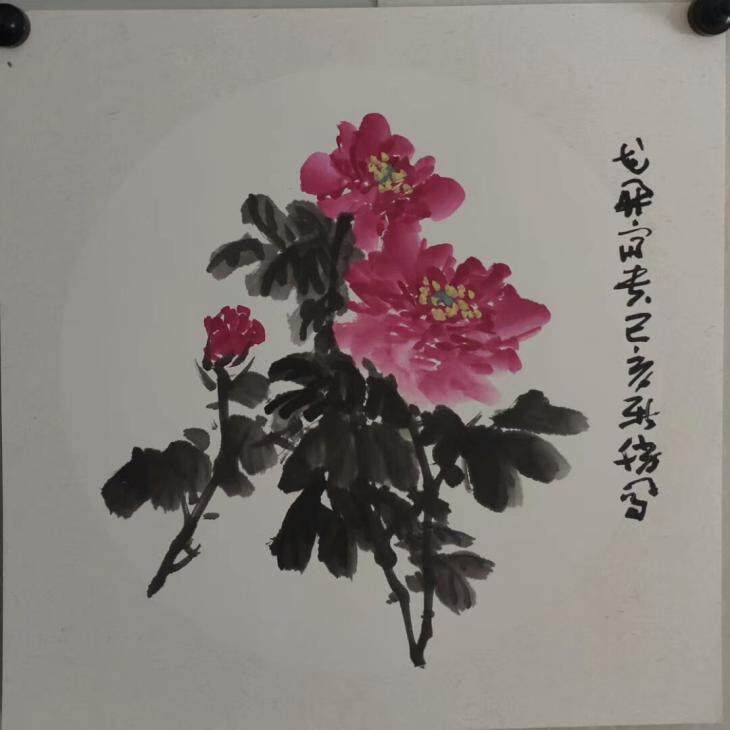 花开富贵己亥